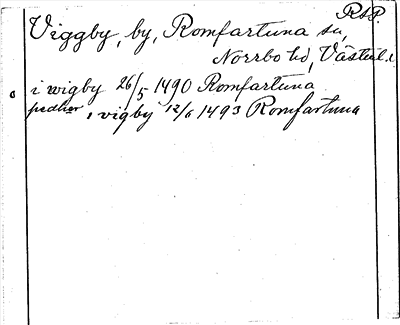 RSP.
Viggby, by, Romfartuna sn,
Norrbo hd, Västml. l.
i wigby 26/5 1490 Romfartuna
pedher i vigby 12/6 1493 Romfartuna